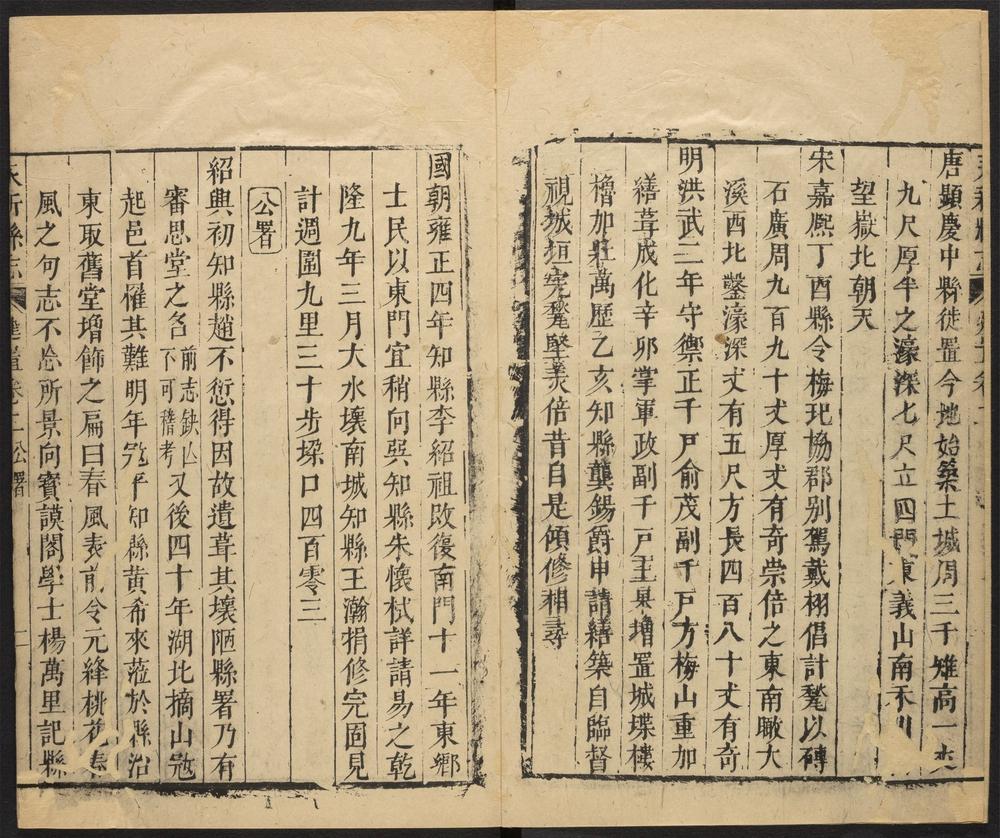 唐顯慶中縣徙置今地始築土城周三千雉高一丈
九尺厚半之濠深七尺立四門東義山南禾川
望嶽北朝天
宋嘉熈丁酉縣令梅玘協郡别駕戴栩倡計甃以磚
石廣周九百九十丈厚丈有奇崇倍之東南瞰大
溪西北鑿濠深丈有五尺方長四百八十丈有奇
明洪武二年守禦正千戸俞茂副千戸方梅山重加
繕葺成化辛卯掌軍政副千戸王杲增置城堞樓
櫓加壯萬歴乙亥知縣龔錫爵申請繕築自臨督
視城垣完甃堅羙倍昔自是傾修相尋
國朝雍正四年知縣李紹祖改復南門十一年東郷
士民以東門宜稍向巽知縣朱懷栻詳請易之乾
隆九年三月大水壞南城知縣王瀚捐修完固見
計週圍九里三十步垜口四百零三
公署
紹興初知縣趙不愆得因故遺葺其壞陋縣署乃有
審思堂之名前志缺亾不可稽考又後四十年湖北摘山冦
起邑首罹其難明年冦平知縣黄希來蒞於縣治
東取舊堂增飾之扁曰春風表前令元絳桃花春
風之句志不忘所景向寳謨閣學士楊萬里記縣
永新縣志 建置卷二 公署 一